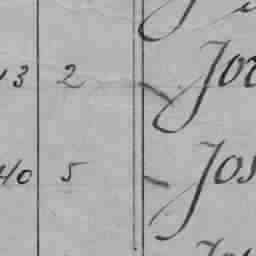 13 2 Jor
40 5 Jos